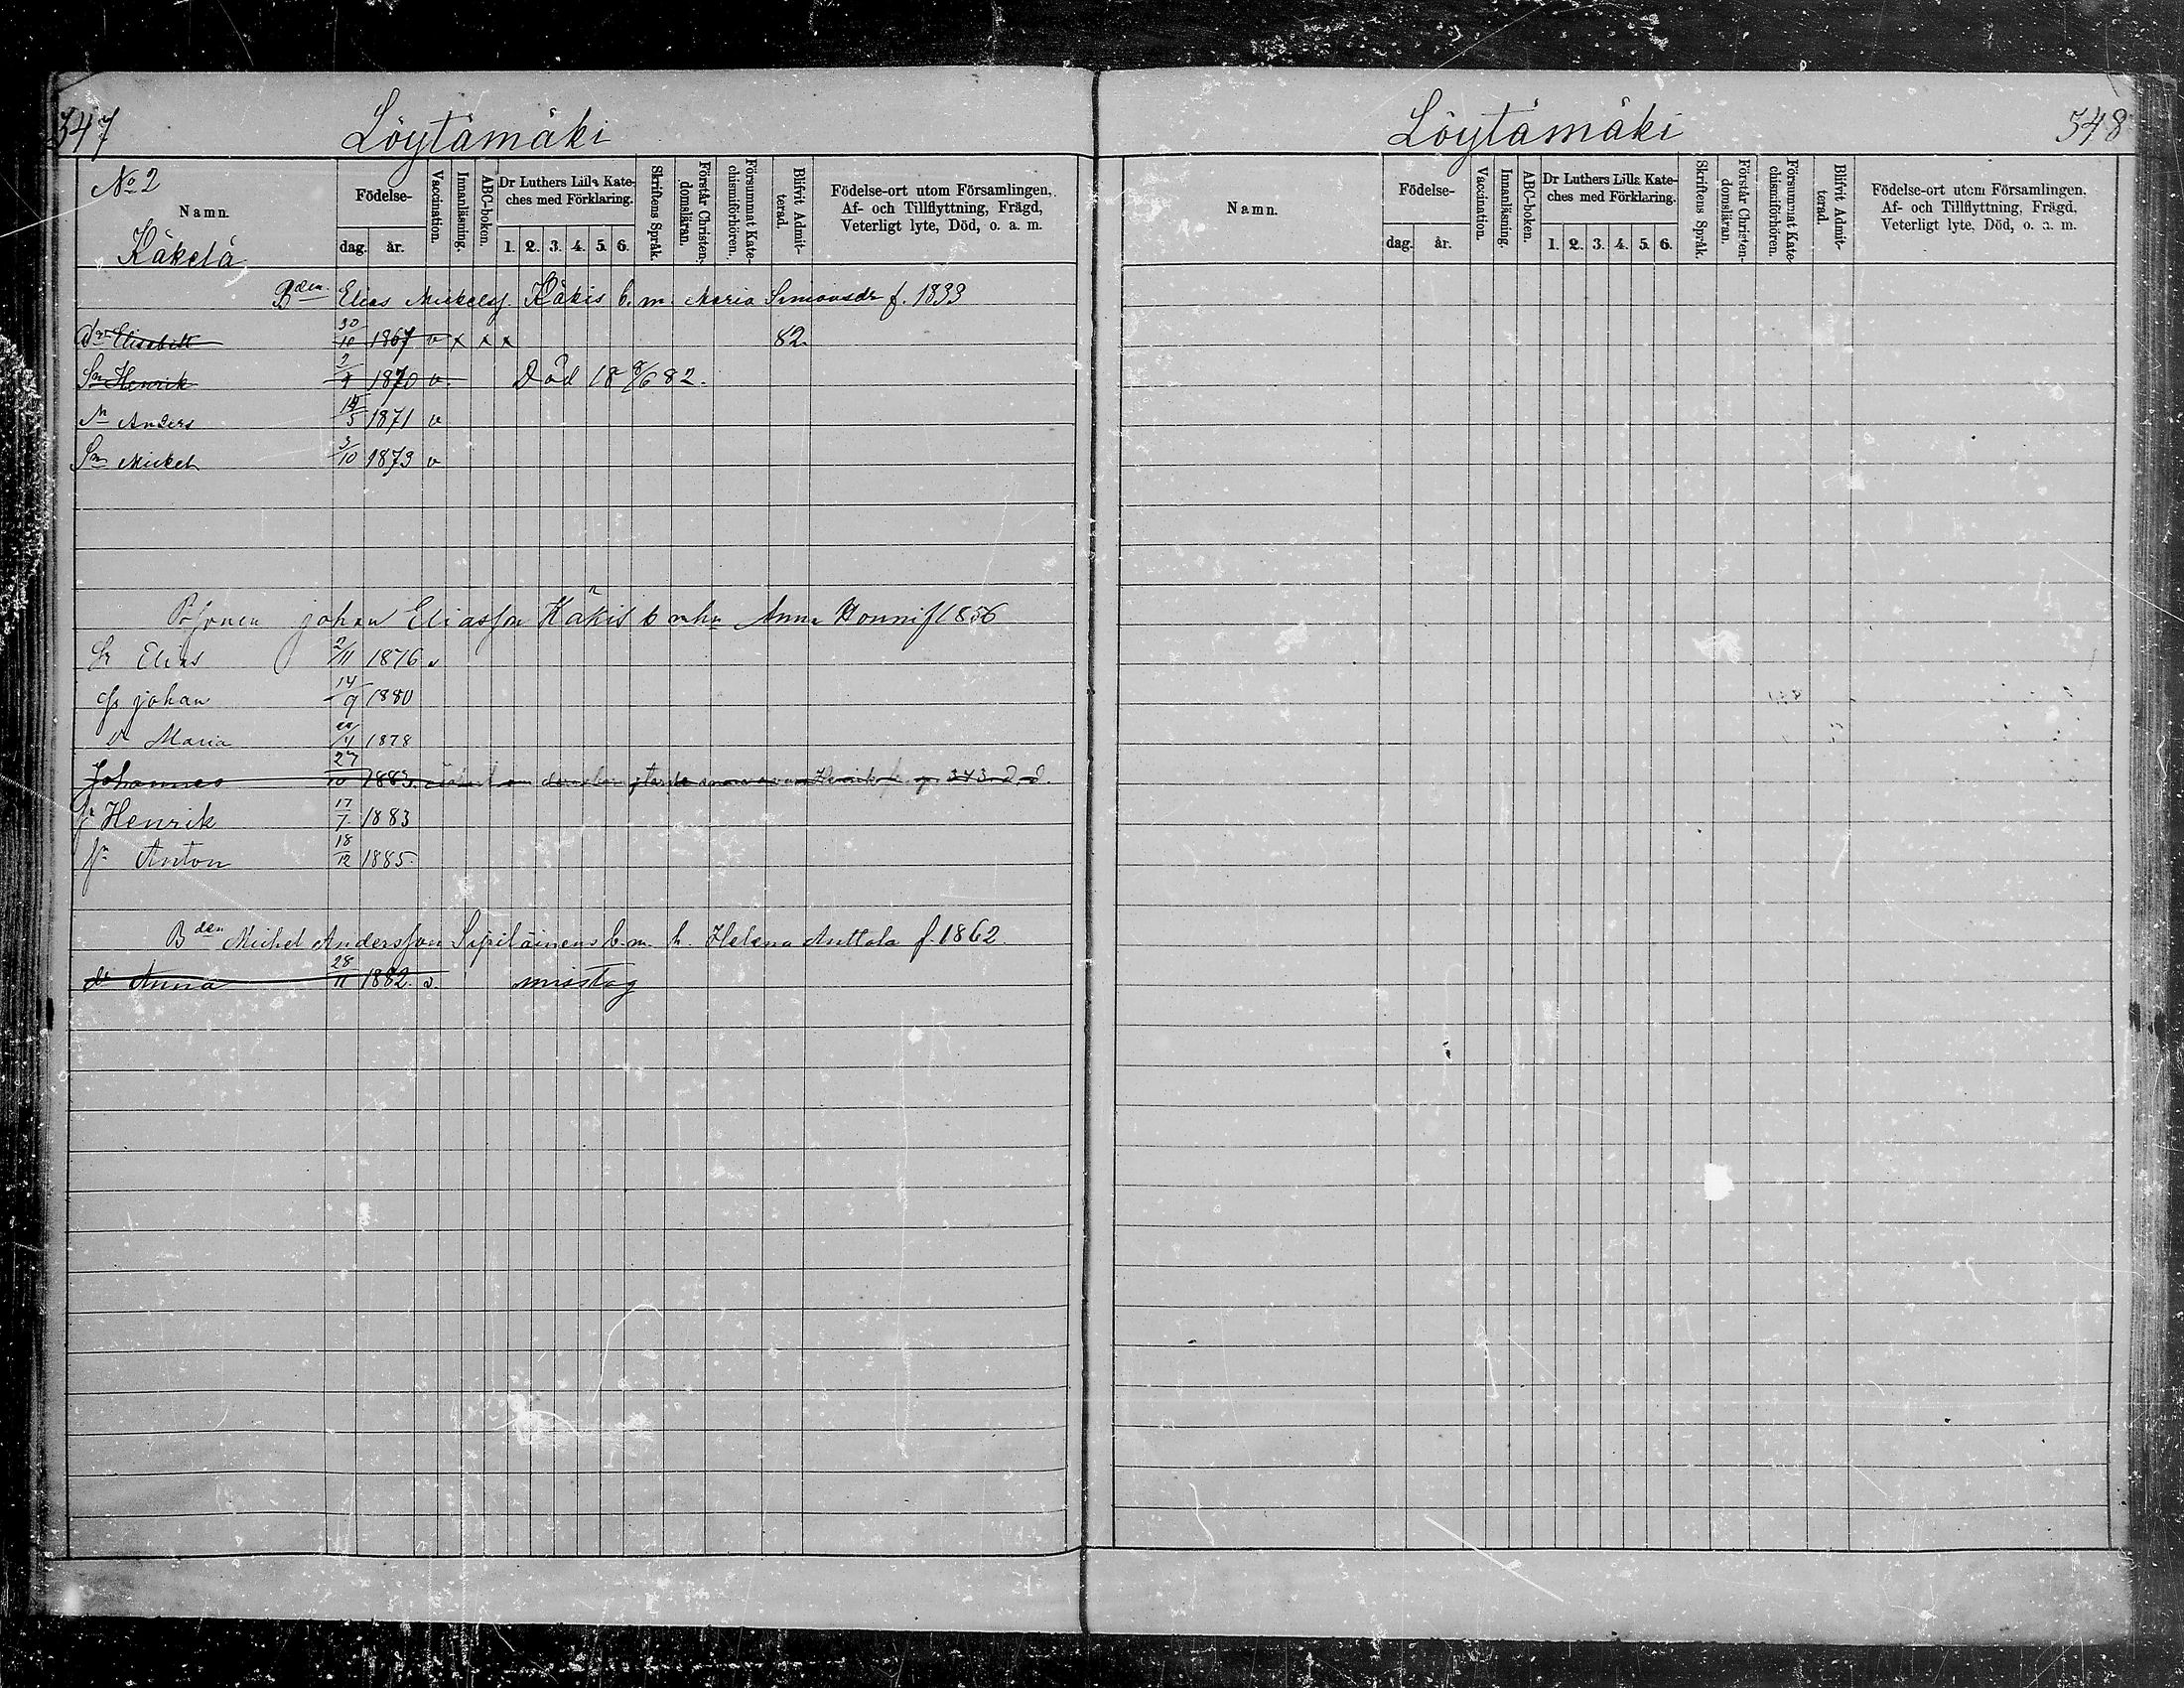 347 Löytämäki
No 2
Namn.
Käkelä
Födelse- dag. år. Vaccination. Innanläsning. ABC-boken. Dr Luthers Lilla Kateches med Förklaring. 1. 2. 3. 4. 5. 6. Skriftens Språk. Förstår Christendomsläran. Försummat Katechismiförhören. Blifvit Admitterad. Födelse-ort utom Församlingen, Af- och Tillflyttning, Frägd, Veterligt lyte, Död, o. a. m.
Bden Elias Mickelss. Käkis b. m. Maria Simonsdr f. 1833
dr Elisabeth 30/10 1867 v x x x 82.
Sn Henrik 1870 v. Död 18 8/6 82.
Sn Anders 1871 v
Sn Mickel 3/10 1873 v
johan Eliasson Käkis b m hu Anna Honni f 1856
Sn Elias 2/11 1876 v
Sn johan 14/9 1880
dr Maria 1878
Johannes 27/10 1883. Henrik p. 343
Sn Henrik 17/7 1883
Sn Anton 18/12 1885.
Bden Michel Andersson b. m. h. Helena Anttola f. 1862.
dr Anna 28/11 1882. v. misstag
Löytämäki 348
Namn. Födelse- dag. år. Vaccination. Innanläsning. ABC-boken. Dr Luthers Lilla Kateches med Förklaring. 1. 2. 3. 4. 5. 6. Skriftens Språk. Förstår Christendomsläran. Försummat Katechismiförhören. Blifvit Admitterad. Födelse-ort utom Församlingen, Af- och Tillflyttning, Frägd, Veterligt lyte, Död, o. a. m.